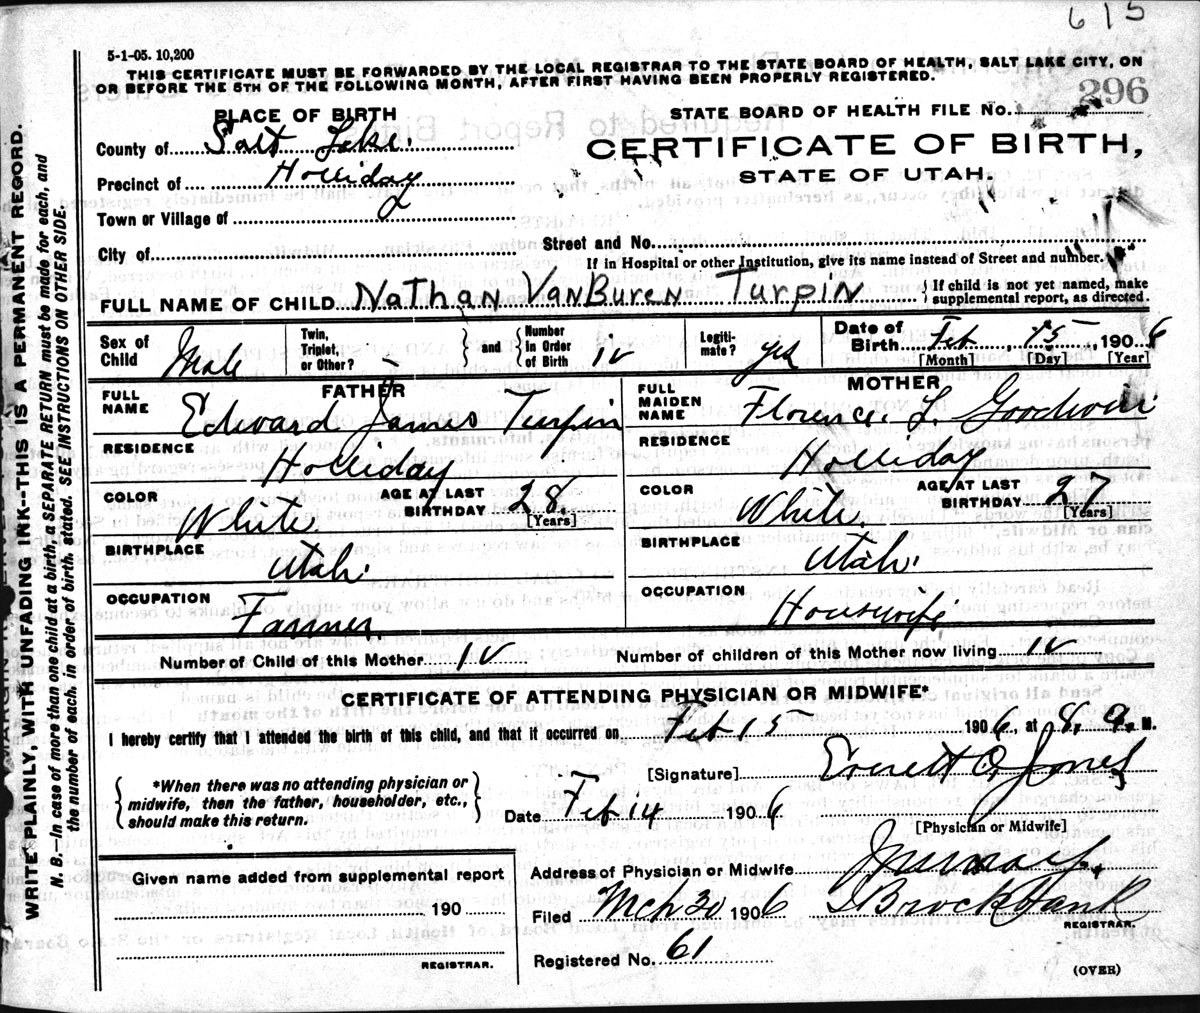 615
5-1-05. 10,200
THIS CERTIFICATE MUST BE FORWARDED BY THE LOCAL REGISTRAR TO THE STATE BOARD OF HEALTH, SALT LAKE CITY, ON
OR BEFORE THE 5TH OF THE FOLLOWING MONTH, AFTER FIRST HAVING BEEN PROPERLY REGISTERED.
296
PLACE OF BIRTH
STATE BOARD OF HEALTH FILE No.
County of Salt Lake.
CERTIFICATE OF BIRTH,
Precinct of Holliday
STATE OF UTAH.
Town or Village of
City of
Street and No.
If in Hospital or other Institution, give its name instead of Street and number.
FULL NAME OF CHILD Nathan VanBuren Turpin { If child is not yet named, make supplemental report, as directed.
Sex of Child Male Twin, Triplet, or Other? } and { Number in Order of Birth iv Legiti-mate? yes Date of Birth Feb, 15, 1906
[Month] [Day] [Year]
FATHER
FULL NAME Edward James Turpin
RESIDENCE Holliday
COLOR White AGE AT LAST BIRTHDAY 28. [Years]
BIRTHPLACE Utah.
OCCUPATION Farmer.
MOTHER
FULL MAIDEN NAME Florence L Goodwin
RESIDENCE Holliday
COLOR White. AGE AT LAST BIRTHDAY 27 [Years]
BIRTHPLACE Utah.
OCCUPATION Housewife
Number of Child of this Mother IV Number of children of this Mother now living IV
CERTIFICATE OF ATTENDING PHYSICIAN OR MIDWIFE*
I hereby certify that I attended the birth of this child, and that it occurred on Feb 15 1906, at 8, a. M.
{ *When there was no attending physician or midwife, then the father, householder, etc., should make this return. }
[Signature] Everett O Jones
Date Feb 14 1906
[Physician or Midwife]
Given name added from supplemental report
190
REGISTRAR.
Address of Physician or Midwife Murray.
Filed Mch 30 1906 Brockbank
REGISTRAR.
Registered No. 61
(OVER)
WRITE PLAINLY, WITH UNFADING INK--THIS IS A PERMANENT RECORD.
N. B.—In case of more than one child at a birth, a SEPARATE RETURN must be made for each, and
the number of each, in order of birth, stated. SEE INSTRUCTIONS ON OTHER SIDE.